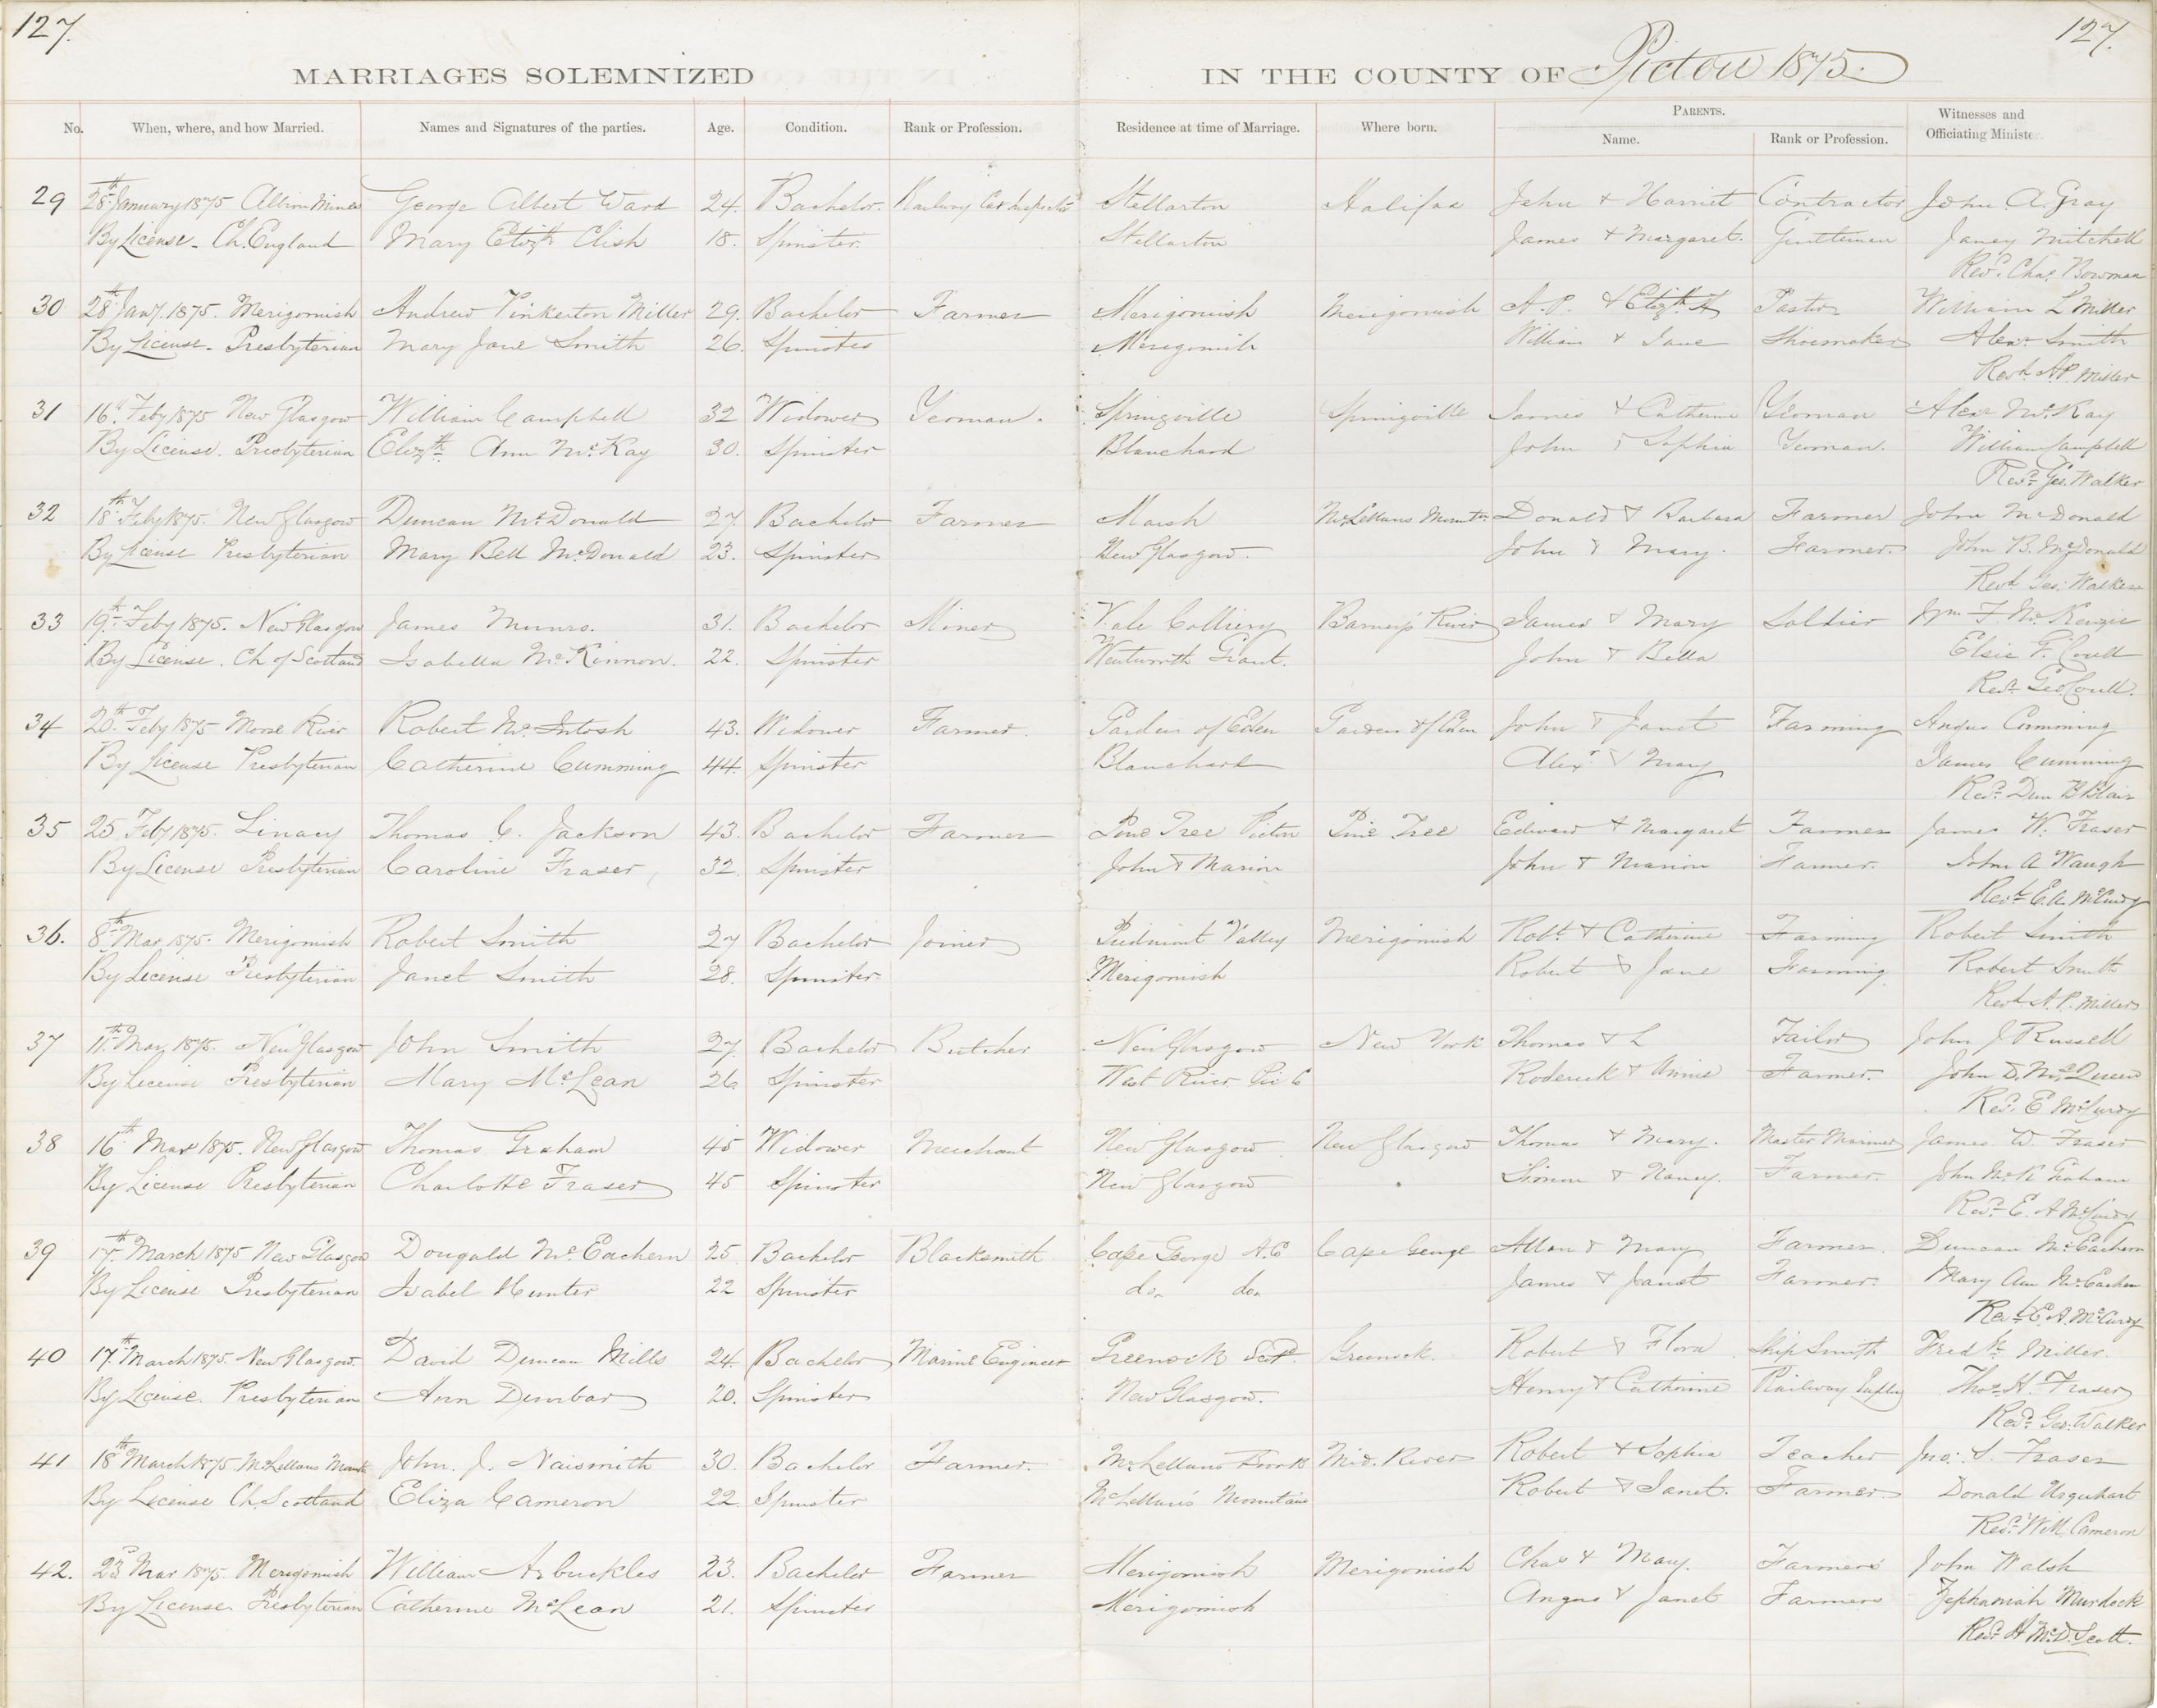 127. 127.
MARRIAGES SOLEMNIZED IN THE COUNTY OF Pictou 1875.
No. When, where, and how Married. Names and Signatures of the parties. Age. Condition. Rank or Profession. Residence at time of Marriage. Where born. PARENTS. Name. Rank or Profession. Witnesses and Officiating Minister.
29 28th January 1875 Albion Mines George Albert Ward 24. Bachelor. Railway Car Inspector Stellarton Halifax John & Harriet Contractor John A. Gray
By License. Ch. England Mary Elizth Clish 18. Spinster. Stellarton James & Margaret. Gentleman Janey Mitchell
Revd. Chas Bowman
30 28th Jany. 1875. Merigomish Andrew Pinkerton Miller 29. Bachelor Farmer Merigomish Merigomish A. P. & Elizth A Pastor William L Miller
By License. Presbyterian Mary Jane Smith 26. Spinster Merigomish William & Jane Shoemaker Alexr Smith
Revd. A.P. Miller
31 16th Feby 1875 New Glasgow William Campbell 32 Widower Yeoman. Springville Springville James & Catherine Yeoman Alexr McKay
By License. Presbyterian Elizth Ann McKay 30. Spinster Blanchard John & Sophia Yeoman. William Campbell
Revd. Geo. Walker
32 18th Feby 1875. New Glasgow Duncan McDonald 27. Bachelor Farmer Marsh McLellans Mountn Donald & Barbara Farmer John McDonald
By License Presbyterian Mary Bell McDonald 23. Spinster New Glasgow. John & Mary. Farmer. John B. McDonald
Revd Geo. Walker
33 19th Feby 1875. New Glasgow James Munro. 31. Bachelor Miner Vale Colliery Barney's River James & Mary Soldier Wm F. McKenzie
By License. Ch of Scotland Isabella McKinnon. 22. Spinster Wentworth Grant. John & Bella Elsie F. Coull
Revd. Geo. Coull.
34 20th Feby 1875 Moose River Robert McIntosh 43. Widower Farmer. Garden of Eden Garden of Eden John & Janet Farming Angus Cumming
By License Presbyterian Catherine Cumming 44. Spinster Blanchard Alexr & Mary James Cumming
Revd. Dun B Blair
35 25 Feby 1875. Linacy Thomas C. Jackson 43. Bachelor Farmer Pine Tree Pictou Pine Tree Edward & Margaret Farmer James W. Fraser
By License Presbyterian Caroline Fraser 32. Spinster John & Marion John & Marion Farmer. John A Waugh
Revd E.A. McCurdy
36. 8th Mar 1875. Merigomish Robert Smith 27 Bachelor Joiner Piedmont Valley Merigomish Robt. & Catherine Farming Robert Smith
By License Presbyterian Janet Smith 28. Spinster. Merigomish Robert & Jane Farming Robert Smith
Revd A.P. Miller
37 11th Mar, 1875. New Glasgow John Smith 27. Bachelor Butcher New Glasgow New York Thomas & L Tailor John J Russell
By License Presbyterian Mary McLean 26 Spinster West River Pic C Roderick & Annie Farmer. John D. McQueen
Revd. E McCurdy
38 16th Mar 1875. New Glasgow Thomas Graham 45 Widower Merchant New Glasgow New Glasgow Thomas & Mary. Master Mariner James W Fraser
By License Presbyterian Charlotte Fraser 45 Spinster New Glasgow Simon & Nancy. Farmer. John McK Graham
Revd. E. A McCurdy
39 17th March 1875 New Glasgow Dougald McEachern 25 Bachelor Blacksmith Cape George A.C Cape George Allan & Mary Farmer. Duncan McEachern
By License Presbyterian Isabel Hunter 22 Spinster do. do. James & Janet Farmer. Mary Ann McEachen
Revd E. A. McCurdy
40 17th March 1875. New Glasgow. David Duncan Mills 24. Bachelor Marine Engineer Greenock Scotd. Greenock. Robert & Flora Ship Smith Fredk. Miller.
By License. Presbyterian Ann Dunbar 20. Spinster New Glasgow. Henry & Catherine Railway Thos. H. Fraser
Revd. Geo. Walker
41 18th March 1875 McLellans Mountn John. J. Naismith 30. Bachelor Farmer. McLellans Brook Mid. River Robert & Sophia Teacher Jno. S. Fraser
By License Ch. Scotland Eliza Cameron 22. Spinster McLellan's Mountain Robert & Janet. Farmer. Donald Urquhart
Revd. W.M. Cameron
42. 23d Mar 1875. Merigomish William Arbuckles 23. Bachelor Farmer Merigomish Merigomish Chas & Mary. Farmers John Walsh
By License. Presbyterian Catherine McLean 21. Spinster Merigomish Angus & Janet Farmers Zephaniah Murdock
Revd. H McD. Scott.